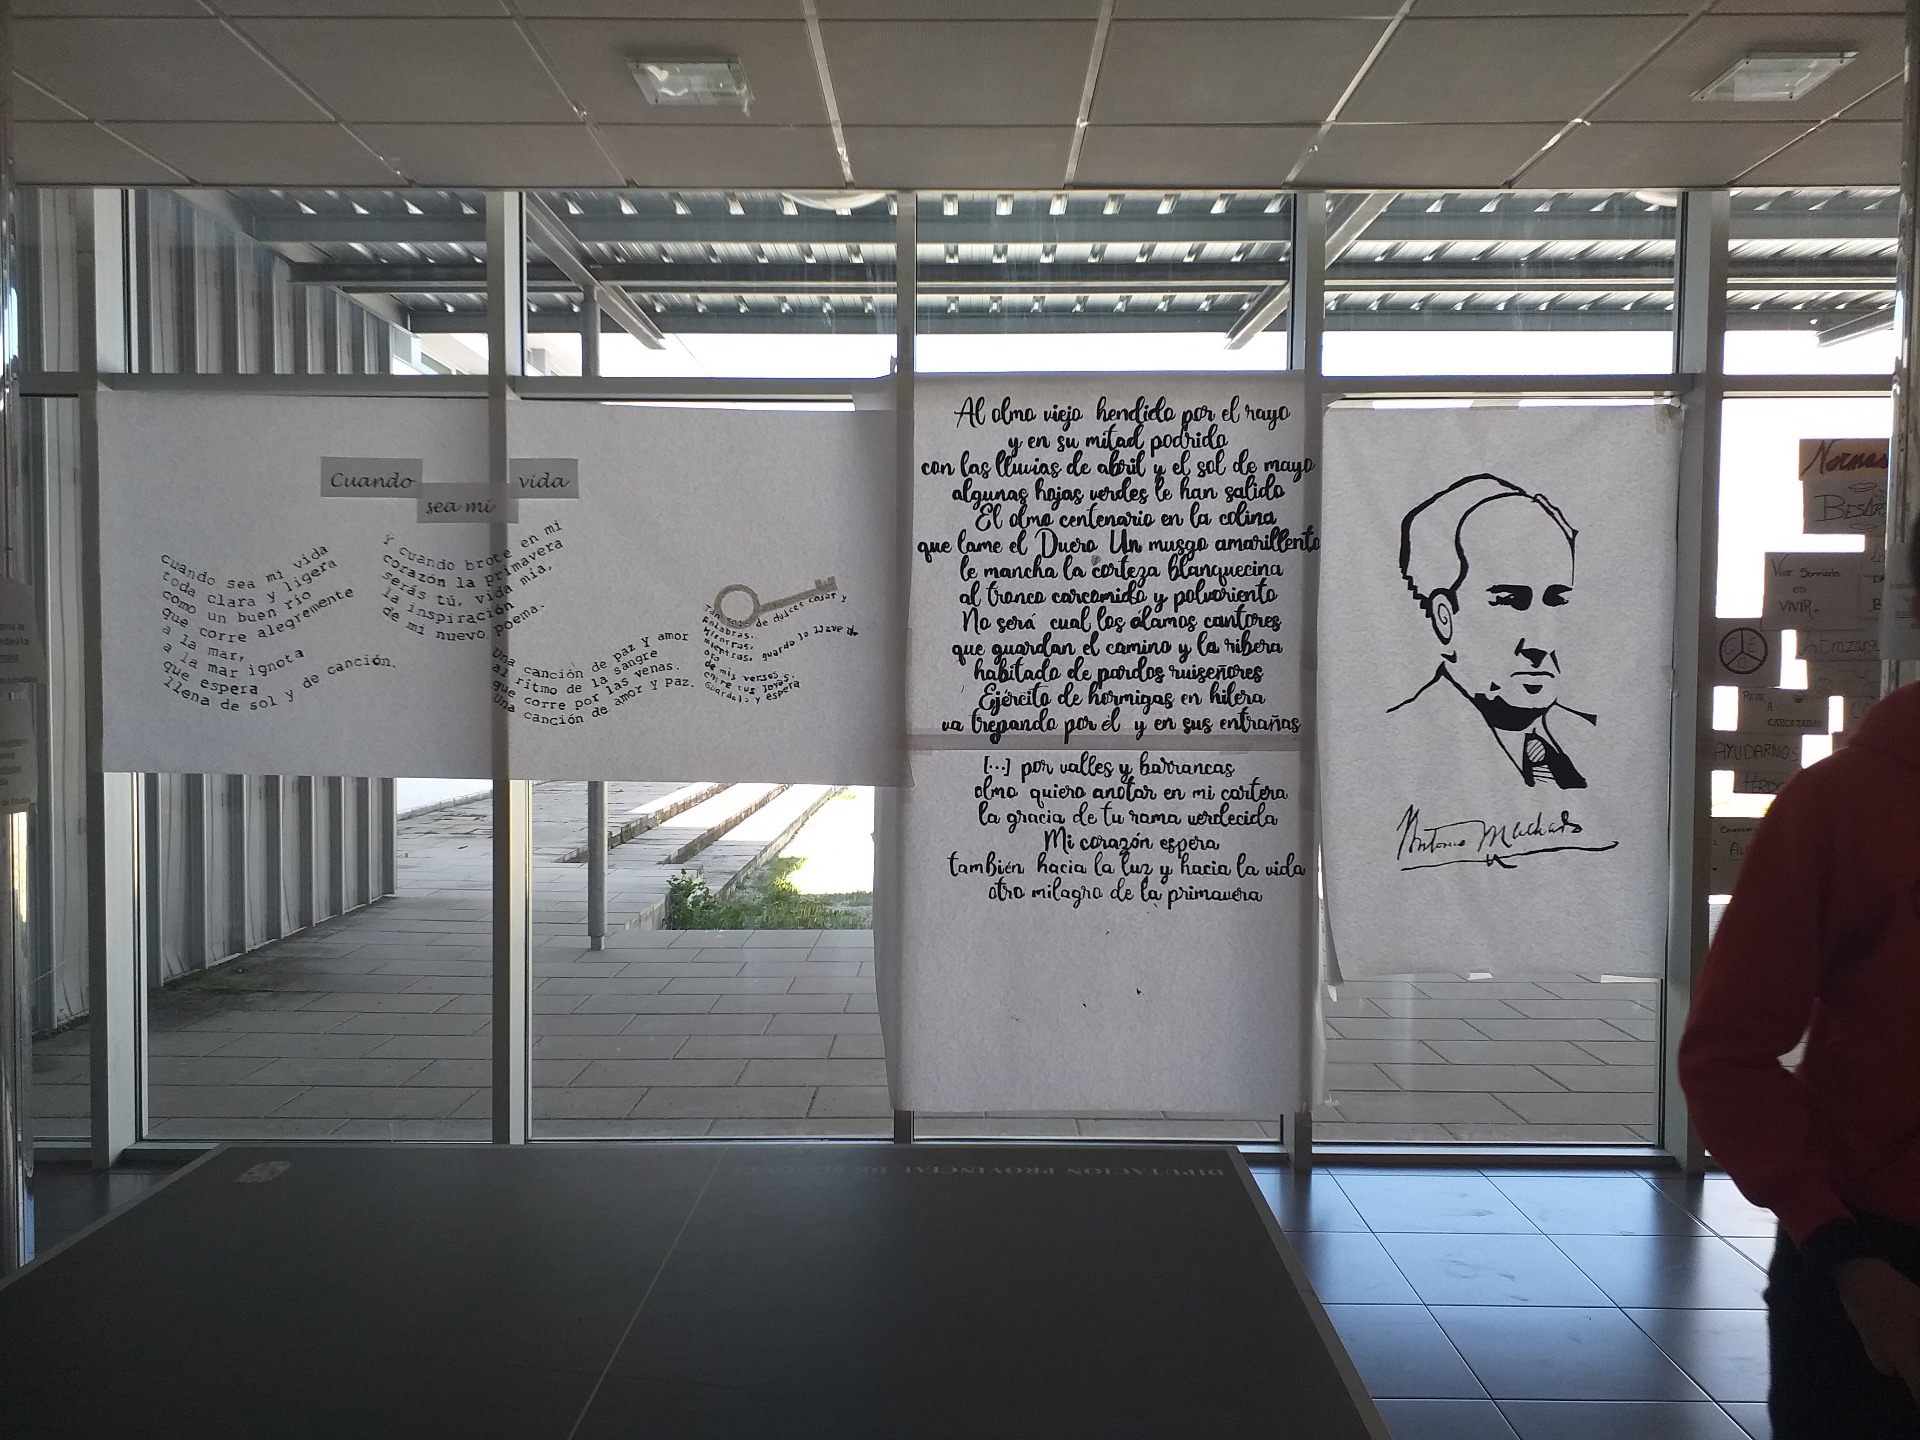 Cuando
sea mi
vida
cuando sea mi vida
toda clara y ligera
como un buen río
que corre alegremente
a la mar,
a la mar ignota
que espera
llena de sol y de canción.
Y cuando brote en mi
corazón la primavera
serás tú, vida mía,
la inspiración
de mi nuevo poema.
Una canción de paz y amor
al ritmo de la sangre
que corre por las venas.
Una canción de amor y paz.
Tan solo de dulces cosas y
palabras.
Mientras,
mientras, guarda la llave de
oro
de mis versos
entre tus joyas.
Guárdala y espera
Al olmo viejo hendido por el rayo
y en su mitad podrido
con las lluvias de abril y el sol de mayo
algunas hojas verdes le han salido
El olmo centenario en la colina
que lame el Duero Un musgo amarillento
le mancha la corteza blanquecina
al tronco carcomido y polvoriento
No será cual los álamos cantores
que guardan el camino y la ribera
habitado de pardos ruiseñores
Ejército de hormigas en hilera
va trepando por él y en sus entrañas
[...] por valles y barrancas
olmo quiero anotar en mi cartera
la gracia de tu rama verdecida
Mi corazón espera
también hacia la luz y hacia la vida
otro milagro de la primavera
Antonio Machado
Normas
Vivir Sonriendo
en
VIVIR.
REIR
A
CARCAJADAS
AYUDARNOS
DIPUTACION PROVINCIAL DE